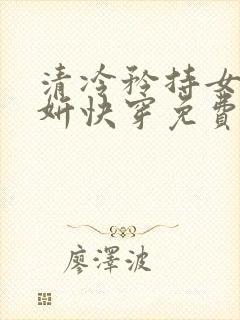 清冷矜持女
妍快穿免費
廖澤波